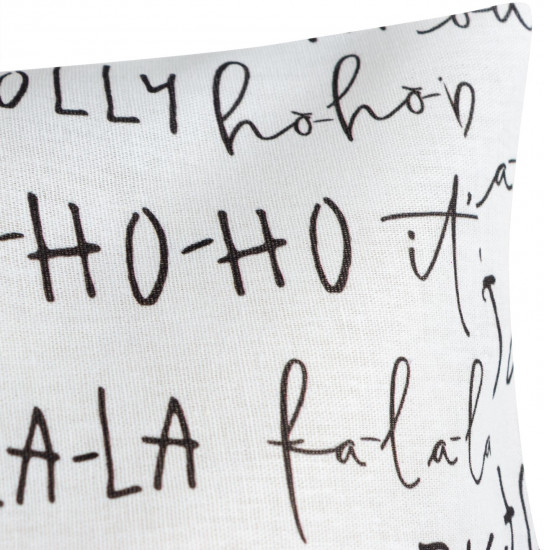 OLLY ho-ho-h
-HO-HO it
A-LA fa-la-la